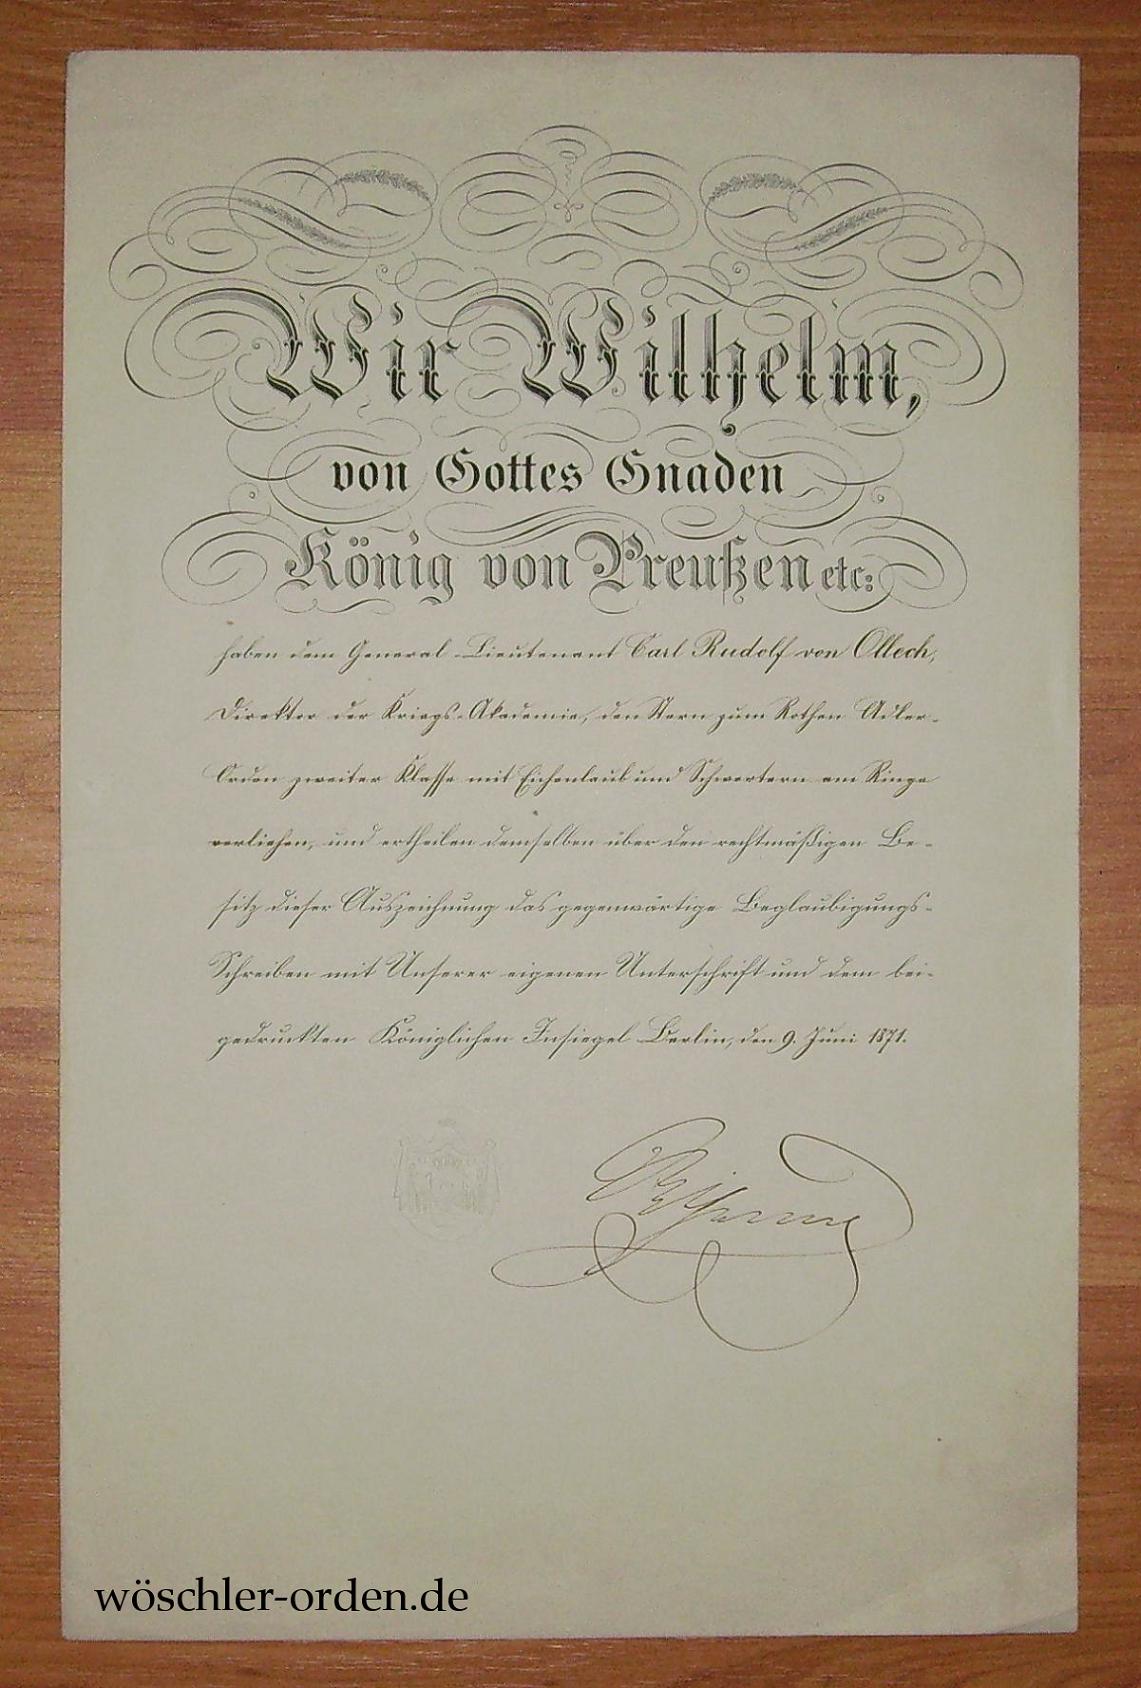 Wir Wilhelm,
von Gottes Gnaden
König von Preußen etc:
haben dem General-Lieutenant Carl Rudolf von Ollech,
Direktor der Kriegs-Akademie, den Stern zum Rothen Adler-
Orden zweiter Klasse mit Eichenlaub und Schwertern am Ringe
verliehen, und ertheilen demselben über den rechtmäßigen Be-
sitz dieser Auszeichnung das gegenwärtige Beglaubigungs-
Schreiben mit Unserer eigenen Unterschrift und dem bei-
gedruckten Königlichen Insiegel Berlin, den 9. Juni 1871.
Wilhelm
wöschler-orden.de